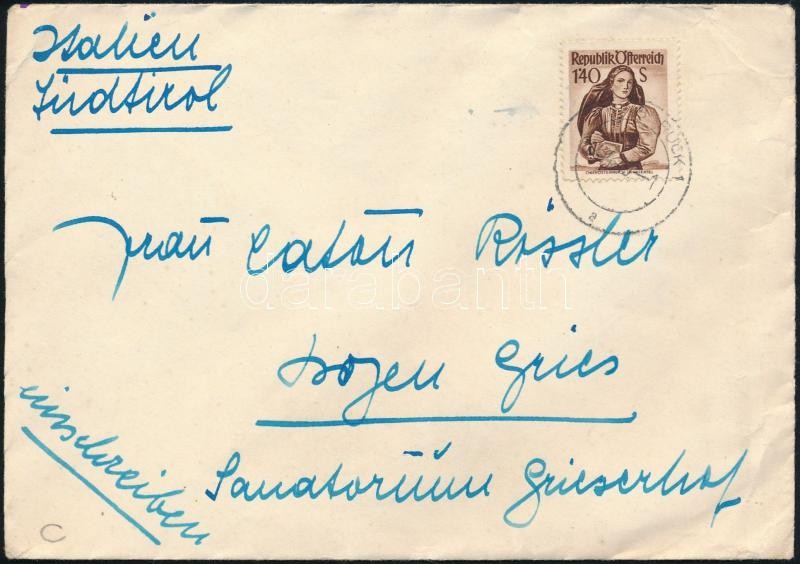 Italien
Südtirol
Republik Österreich
1'40 S
BRUCK 1
a
Frau Catoni Rössler
darabanth
Bozen Gries
einschreiben
Sanatorium Grieserhof
C